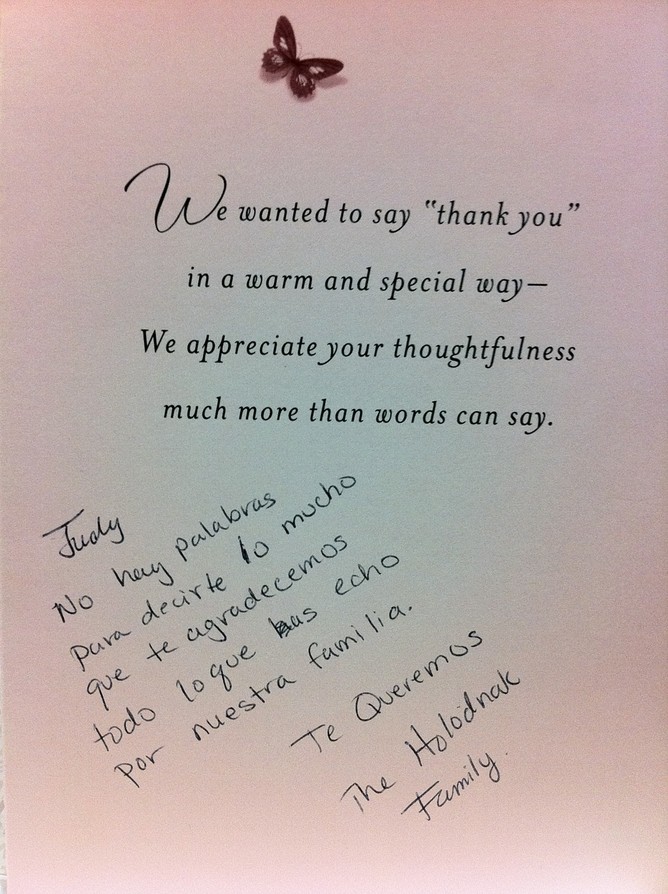 We wanted to say “thank you”
in a warm and special way—
We appreciate your thoughtfulness
much more than words can say.
Judy
No hay palabras
para decirte lo mucho
que te agradecemos
todo loque has echo
Por nuestra familia.
Te Queremos
The Holodnak
Family.